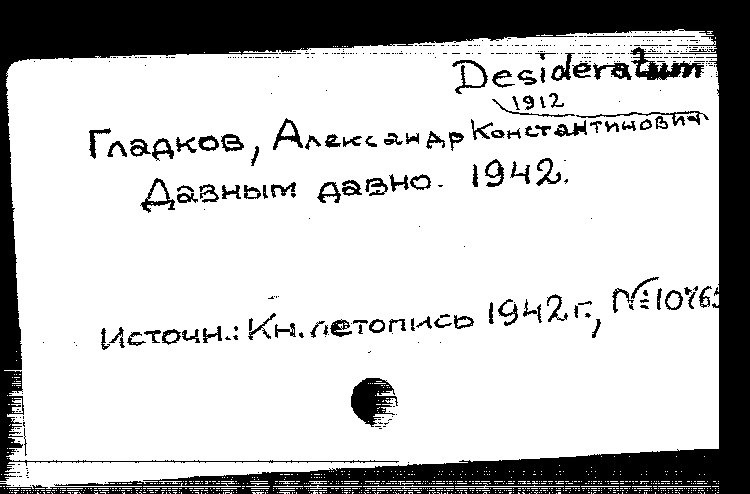 Desideratum
1912
Гладков, Александр Константинович
Давным давно. 1942.
Источн.: Кн. летопись 1942 г., № 10765